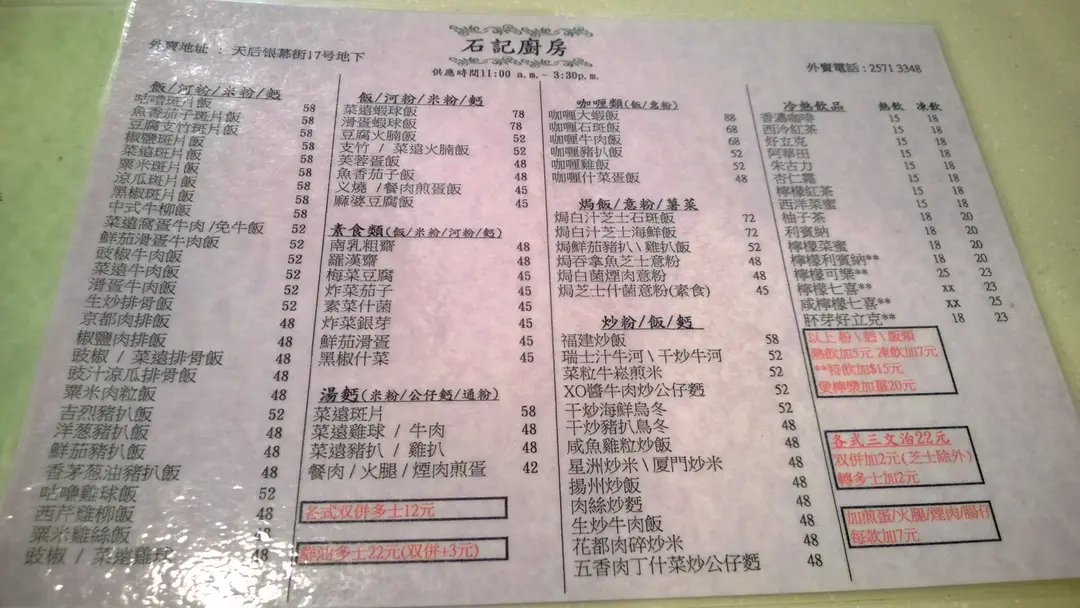 石記廚房
外賣地址 : 天后银幕街17号地下
供應時間11:00 a.m.- 3:30p.m.
外賣電話:2571 3348
飯/河粉/米粉/麪
咕嚕斑片飯 58
魚香茄子斑片飯 58
豆腐支竹斑片飯 58
椒鹽斑片飯 58
菜遠斑片飯 58
粟米斑片飯 58
涼瓜斑片飯 58
黑椒斑片飯 58
中式牛柳飯 58
菜遠窩蛋牛肉/免牛飯 52
鮮茄滑蛋牛肉飯 52
豉椒牛肉飯 52
菜遠牛肉飯 52
滑蛋牛肉飯 52
生炒排骨飯 52
京都肉排飯 48
椒鹽肉排飯 48
豉椒 / 菜遠排骨飯 48
豉汁涼瓜排骨飯 48
粟米肉粒飯 48
吉烈豬扒飯 52
洋葱豬扒飯 48
鮮茄豬扒飯 48
香茅葱油豬扒飯 48
咕嚕雞球飯 52
西芹雞柳飯 48
粟米雞絲飯 48
豉椒 / 菜遠雞球 48
飯/河粉/米粉/麪
菜遠蝦球飯 78
滑蛋蝦球飯 78
豆腐火腩飯 52
支竹 / 菜遠火腩飯 52
芙蓉蛋飯 48
魚香茄子飯 48
义燒 /餐肉煎蛋飯 45
麻婆豆腐飯 45
素食類(飯/米粉/河粉/麪)
南乳粗齋 48
羅漢齋 48
梅菜豆腐 45
炸菜茄子 45
素菜什菌 45
炸菜銀芽 45
鮮茄滑蛋 45
黑椒什菜 45
湯麪(米粉/公仔麪/通粉)
菜遠斑片 58
菜遠雞球 / 牛肉 48
菜遠豬扒 / 雞扒 48
餐肉/火腿/煙肉煎蛋 42
各式双併多士12元
鮮油多士22元(双併+3元)
咖喱類(飯/意粉)
咖喱大蝦飯 88
咖喱石斑飯 68
咖喱牛肉飯 68
咖喱豬扒飯 52
咖喱雞飯 52
咖喱什菜飯 48
焗飯/意粉/薯菜
焗白汁芝士石斑飯 72
焗白汁芝士海鮮飯 72
焗鮮茄豬扒\雞扒飯 52
焗吞拿魚芝士意粉 48
焗白菌煙肉意粉 48
焗芝士什菌意粉(素食) 45
炒粉/飯/麪
福建炒飯 58
瑞士汁牛河\干炒牛河 52
菜粒牛崧煎米 52
XO醬牛肉炒公仔麪 52
干炒海鮮烏冬 52
干炒豬扒烏冬 48
咸魚雞粒炒飯 48
星洲炒米\厦門炒米 48
揚州炒飯 48
肉絲炒麪 48
生炒牛肉飯 48
花都肉碎炒米 48
五香肉丁什菜炒公仔麪 48
冷熱飲品 熱飲 凍飲
香濃咖啡 15 18
西冷紅茶 15 18
好立克 15 18
阿華田 15 18
朱古力 15 18
杏仁霜 15 18
檸檬紅茶 15 18
西洋菜蜜 15 18
柚子茶 18 20
利賓納 18 20
檸檬菜蜜 18 20
檸檬利賓納** 18 20
檸檬可樂** 25 23
檸檬七喜** xx 23
咸檸檬七喜** xx 25
胚芽好立克** 18 23
以上 粉 \ 麪 \ 飯類
熱飲加5元 凍飲加7元
**特飲加$15元
愛檸樂加薑20元
各式三文治22元
双併加2元(芝士除外)
轉多士加2元
加煎蛋/火腿/煙肉/腸仔
每款加7元